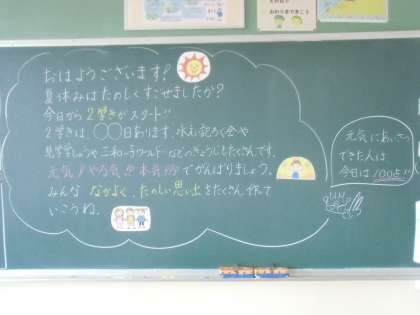 おはようございます!
夏休みはたのしくすごせましたか?
今日から2学きがスタート
2学きは、〇〇日あります。水えい記ろく会や
などのぎょうじもたくさんです。
元気!やる気!
でがんばりましょう。
みんな なかよく、たのしい思い出をたくさん作って
いこうね。
元気にあいさつ
できた人は
今日は100点!!